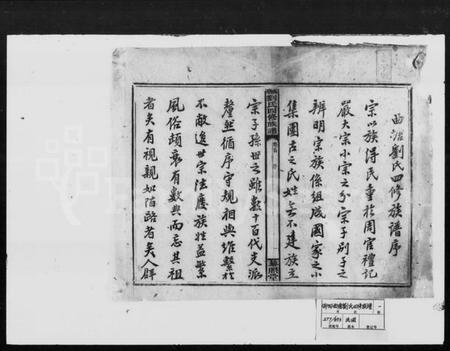 曲江劉氏四修族譜序
宗以族得民重於周官禮記
嚴大宗小宗之分宗子別子之
辨明宗族係組成國家之小
集團古之氏姓無不建族立
宗子孫世世雖數十百代支派
釐然循序守規相與維繫於
不敝迨世宗法廢族姓益繁
風俗頹衰有數典而忘其祖
者矣有視親如陌路者矣人群
劉氏四修族譜